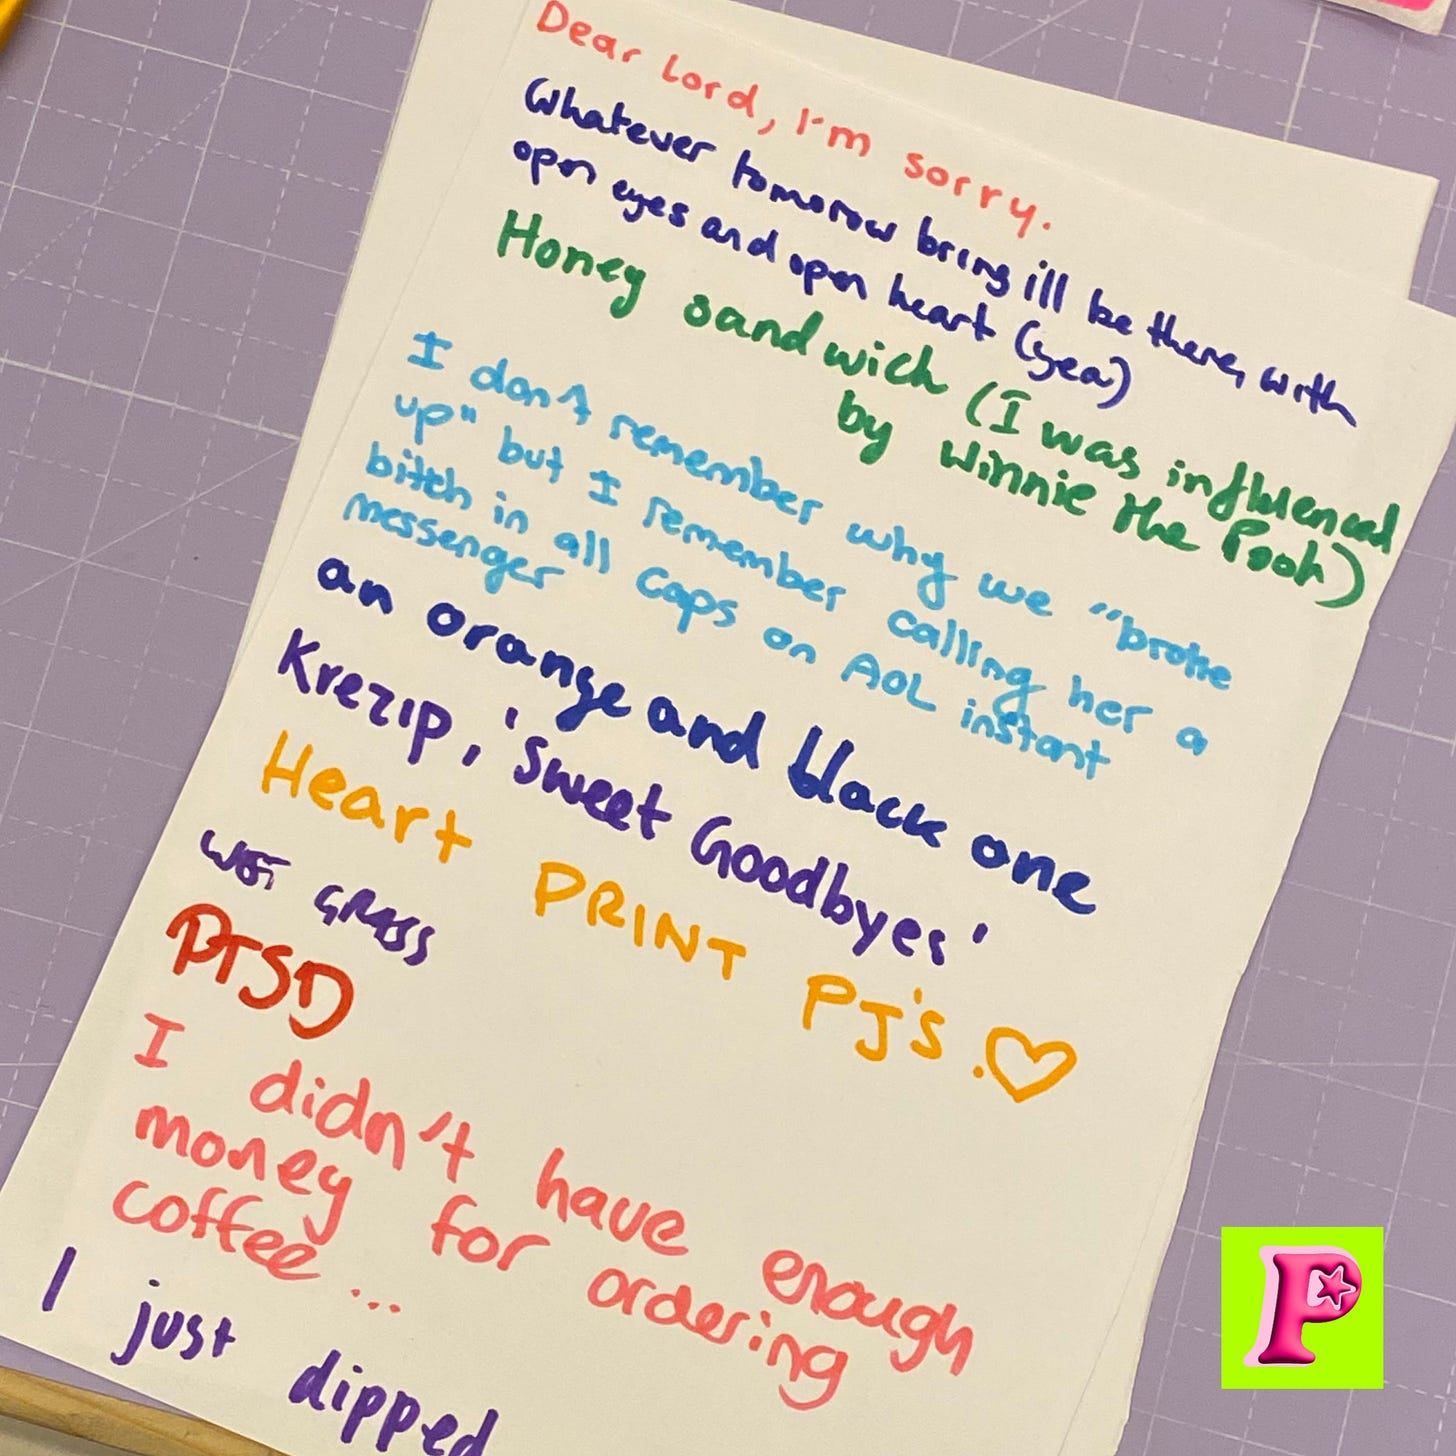 Dear Lord, I'm sorry.
Whatever tomorow bring ill be there, with
open eyes and open heart (yea)
Honey sandwich (I was influenced
by Winnie the Pooh)
I don't remember why we "broke
up" but I remember calling her a
bitch in all caps on AOL instant
messenger
an orange and black one
Krezip, 'Sweet Goodbyes'
Heart PRINT PJ's.
WET GRASS
PTSD
I didn't have enough
money for ordering
coffee...
I just dipped
P